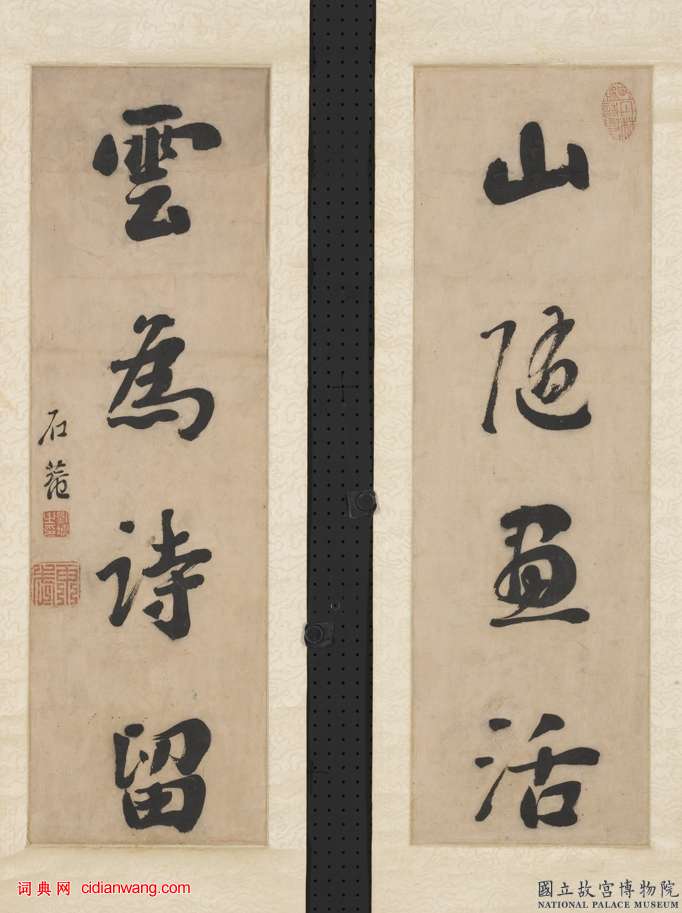 山隨畫活
雲為詩留
石菴
词典网 cidianwang.com
國立故宮博物院
NATIONAL PALACE MUSEUM